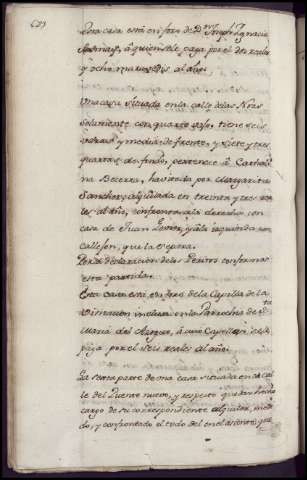 Esta casa está en foro de Dn. Joseph Ignacio
a quien se le paga por el dos reales
y ocho maravedis al año.
Una casa situada en la calle de las
solamente con quarto vajo, tiene seis
varas y media de frente, y siete y tres
quartas de fondo, pertenece á Cathali
na Becerra, havitada por Margarita
Sanchez, alquilada en treinta y tres rea
les al año, confronta á la derecha con
casa de Juan y á la izquierda con
callejon, que la separa.
Por la declaracion de los Peritos conforma
esta partida.
Esta casa está en foro de la Capilla de la
Visitacion inclusa en la Parrochia de Sta.
Maria del á cuio Capellan se le
paga por el seis reales al año.
La sexta parte de una casa situada en la ca
lle del Puente nuevo, y respecto queda hecho
cargo de su correspondiente alquiler, medi
do, y confrontado el todo del en el asiento, que